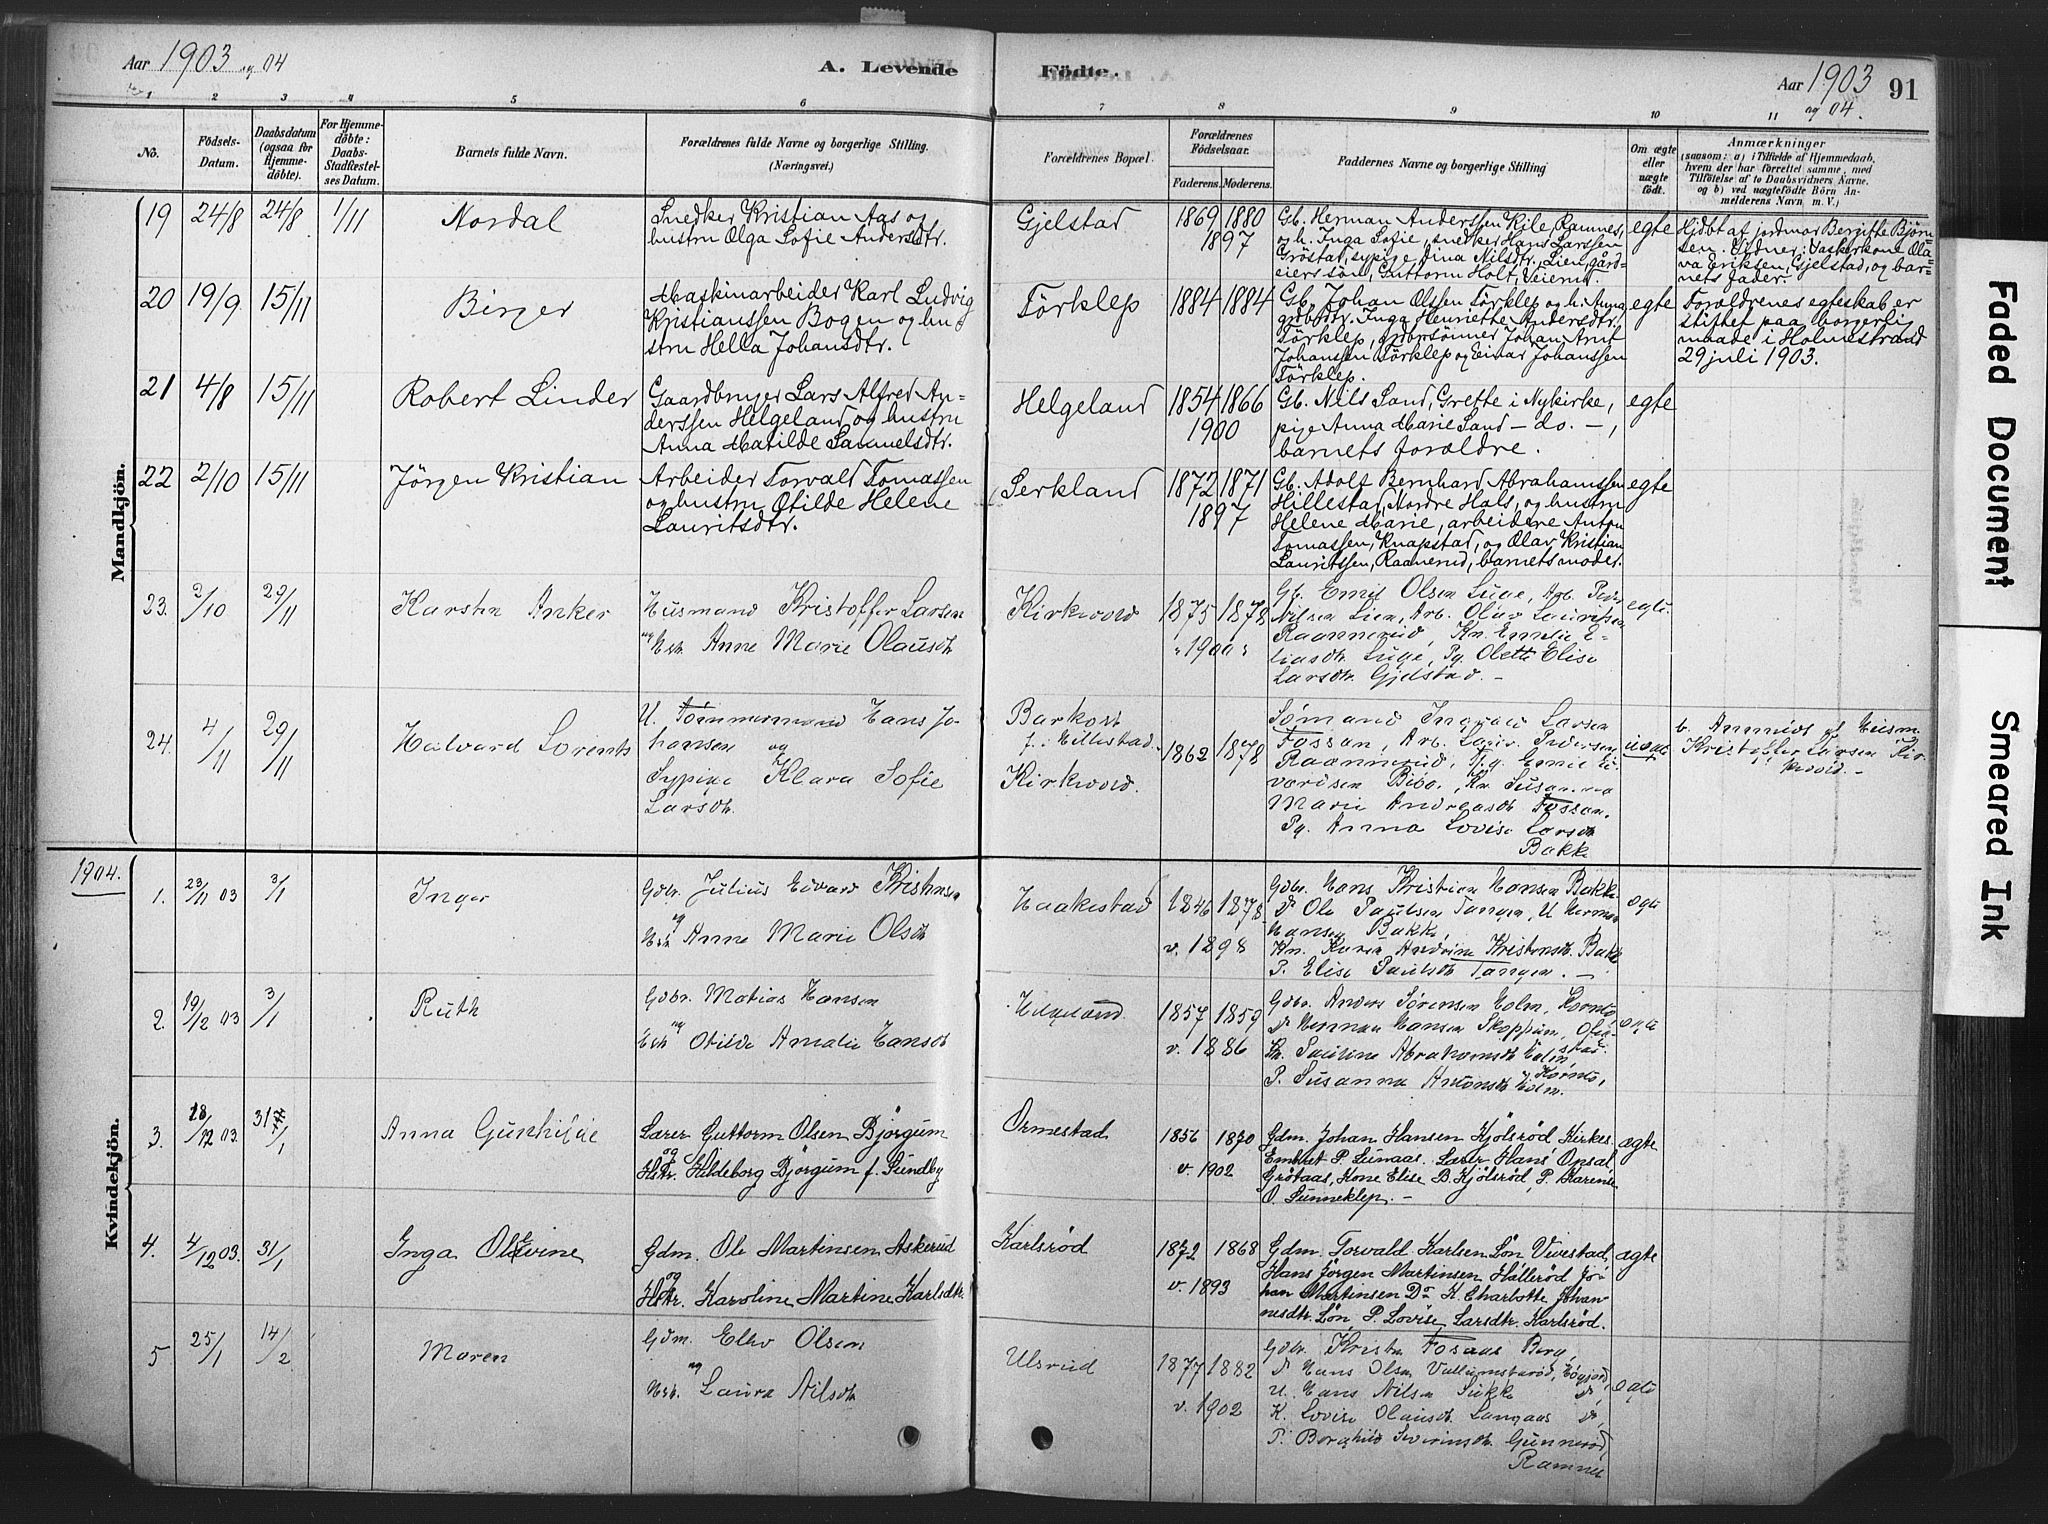 Aar 1903 og 04
A. Levende Födte.
Aar 1903 og 04. 91
1 2 3 4 5 6 7 8 9 10 11
No. Födsels-Datum. Daabsdatum (ogsaa for Hjemmedöbte). For Hjemmedöbte: Daabs-Stadfæstelses Datum. Barnets fulde Navn. Forældrenes fulde Navne og borgerlige Stilling. (Næringsvei.) Forældrenes Bopæl. Forældrenes Födselsaar. Faderens. Moderens. Faddernes Navne og borgerlige Stilling Om ægte eller uægte födt. Anmærkninger (saasom: a) i Tilfælde af Hjemmedaab, hvem der har forrettet samme, med Tilföielse af to Daabsvidners Navne, og b) ved uægtefödte Börn Anmelderens Navn m. V.)
Mandkjön.
19 24/8 24/8 1/11 Nordal
Snedker Kristian Aas og
hustru Olga Sofie Andersdtr.
Gjelstad 1869 1880
1897
Gb. Herman Anderssen Kile, Ramnes,
og h. Inga Sofie, snedker Hans Larssen
Gröstad, sypige Jina Nilsdtr. Lien, gård-
eiers sön, Guttorm Holt, Veierud.
egte
Hjdbt af jordmor Bergitte Björn-
sen. Vidner: Vaskerkone Ola-
va Eriksen, Gjelstad, og bar-
nets fader.
20 19/9 15/11 Birger
Maskinarbeider Karl Ludvig
Kristianssen Bogen og hu-
stru Hella Johansdtr.
Förklep 1884 1884
Gb. Johan Olssen Förklep og h. Anna,
grdbrdtr. Inga Henriette Andersdtr.
Förklep, grdbrsönner Johan Arnt
Johanssen Förklep og Einar Johanssen
Förklep.
egte
Forældrenes egteskab er
stiftet paa borgerlig
maade i Holmestrand
29 juli 1903.
21 4/8 15/11 Robert Linder
Gaardbruger Lars Alfred An-
derssen Helgeland og hustru
Anna Matilde Samuelsdtr.
Helgeland 1854 1866
1900
Gb. Nils Sand, Grette i Nykirke,
pige Anna Marie Sand - do. -,
barnets foreldre.
egte
22 2/10 15/11 Jörgen Kristian
Arbeider Torvald Tomassen
og hustru Otilde Helene
Lauritsdtr.
Serkland 1872 1871
1897
Gb. Adolf Bernhard Abrahamssen
Hillestad, Nordre Hals, og hustru
Helene Marie, arbeidere Anton
Tomassen, Knapstad, og Olav Kristian
Lauritssen, Raanerud, barnets moder.
egte
23. 2/10 29/11 Karsten Anker
Husmand Kristoffer Larsen
og Hst. Anne Marie Olausdt
Kirkevold 1875 1878
"1900"
Gb. Emil Olsen Luge, Arb. Peder
Nilsen Lien, Arb. Olav Lauritsen
Raannerud, Kn. Emelie E-
liasdt. Luge, Pg. Olette Elise
Larsdt. Gjelstad. -
egte.
24. 4/11 29/11 Halvard Lorents
U. Tømmermand Hans Jo-
hansen
og
Sypige Klara Sofie
Larsdt.
Barkost
f. Hillestad.
Kirkevold. 1862 1878
Sømand Ingvald Larsen
Fossan, Arb. Ludv. Pedersen
Raannerud, Pg. Emilie Ed-
vardsen Bibo, Kn. Susanna
Marie Andreasdt Fossan.
Pg. Anna Lovise Larsdt
Bakke
uegte
b. Anmeldt af Husm.
Kristoffer Larsen Kir-
kevold. -
1904.
Kvindekjön.
1. 23/11 03 3/1 Inger
Gdbr. Julius Edvard Kristensen
og
Hst. Anne Marie Olsdt
Haakestad 1846 1878
v. 1898
Gdbr. Hans Kristian Hansen Bakke
do Ole Paulsen Tangen, U. Herman
Hansen Bakke,
Kn. Karen Andrine Kristensdt. Bakke
P. Elise Paulsdt Tangen. -
egte
2. 19/12 03 3/1 Ruth
Gdbr. Matias Hansen
og
Hst. Otilde Amalie Hansdt
Helgeland 1857 1859
v. 1886
Gdbr. Anders Sørensen Holm,
do Herman Hansen Skoppum,
Kn. Pauline Abrahamsdt Holm,
P. Susanna Antonsdt Holm.
egte
3. 18/12 03. 31/1 Anna Gunhilde
Lærer Guttorm Olsen Björgum
og
Hstr. Hildeborg Björgum f. Sundby
Ormestad 1856 1870
v. 1902
Gdm. Johan Hansen Kjölsröd Kirkes.
Emhet P. Sunaas. Lærer Hans Opsal
Grötaas, Kone Elise B. Kjölsröd, P. Karense
O. Sunneklep. -
ægte
4. 4/12 03. 31/1 Inga Olevine
Gdm. Ole Martinsen Askerud
og
Hstr. Karoline Martine Karlsdtr.
Karlsröd 1872 1868
v. 1893
Gdm. Torvald Karlsen Lön Vivestad,
Hans Jörgen Martinsen Hölleröd, Jo-
han Martinsen Do K. Charlotte Johan-
nesdtr. Lön, P. Lovise Larsdtr. Karlsröd.
ægte
5 25/1 14/2 Maren
Gdm. Ellev Olsen
og
Hst. Laura Nilsdt
Ulsrud 1877 1882
v. 1902
Gdbr. Krister Fosaas Berg,
do Hans Olsen Vallumsrød, Høyjord,
U. Hans Nilsen Sukke do,
K. Lovise Olausdt. Langaas do,
P. Borghild Severinsdt. Gunnerød,
Ramnes
egte
Faded Document
Smeared Ink